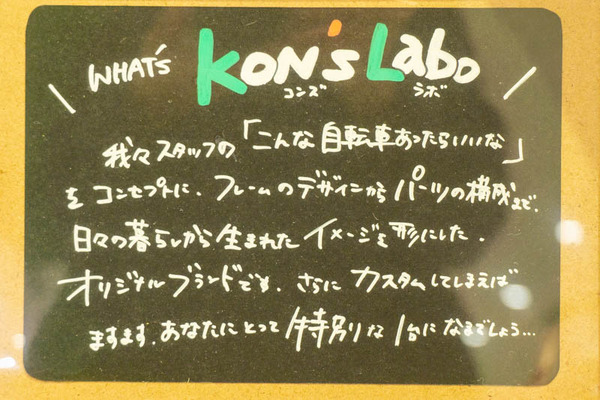 WHAT'S KON'S Labo
コンズ ラボ
我々スタッフの「こんな自転車あったらいいな」
をコンセプトに、フレームのデザインからパーツの構成まで、
日々の暮らしから生まれたイメージを形にした、
オリジナルブランドです。さらにカスタムしてしまえば
ますます、あなたにとって特別な1台になるでしょう…